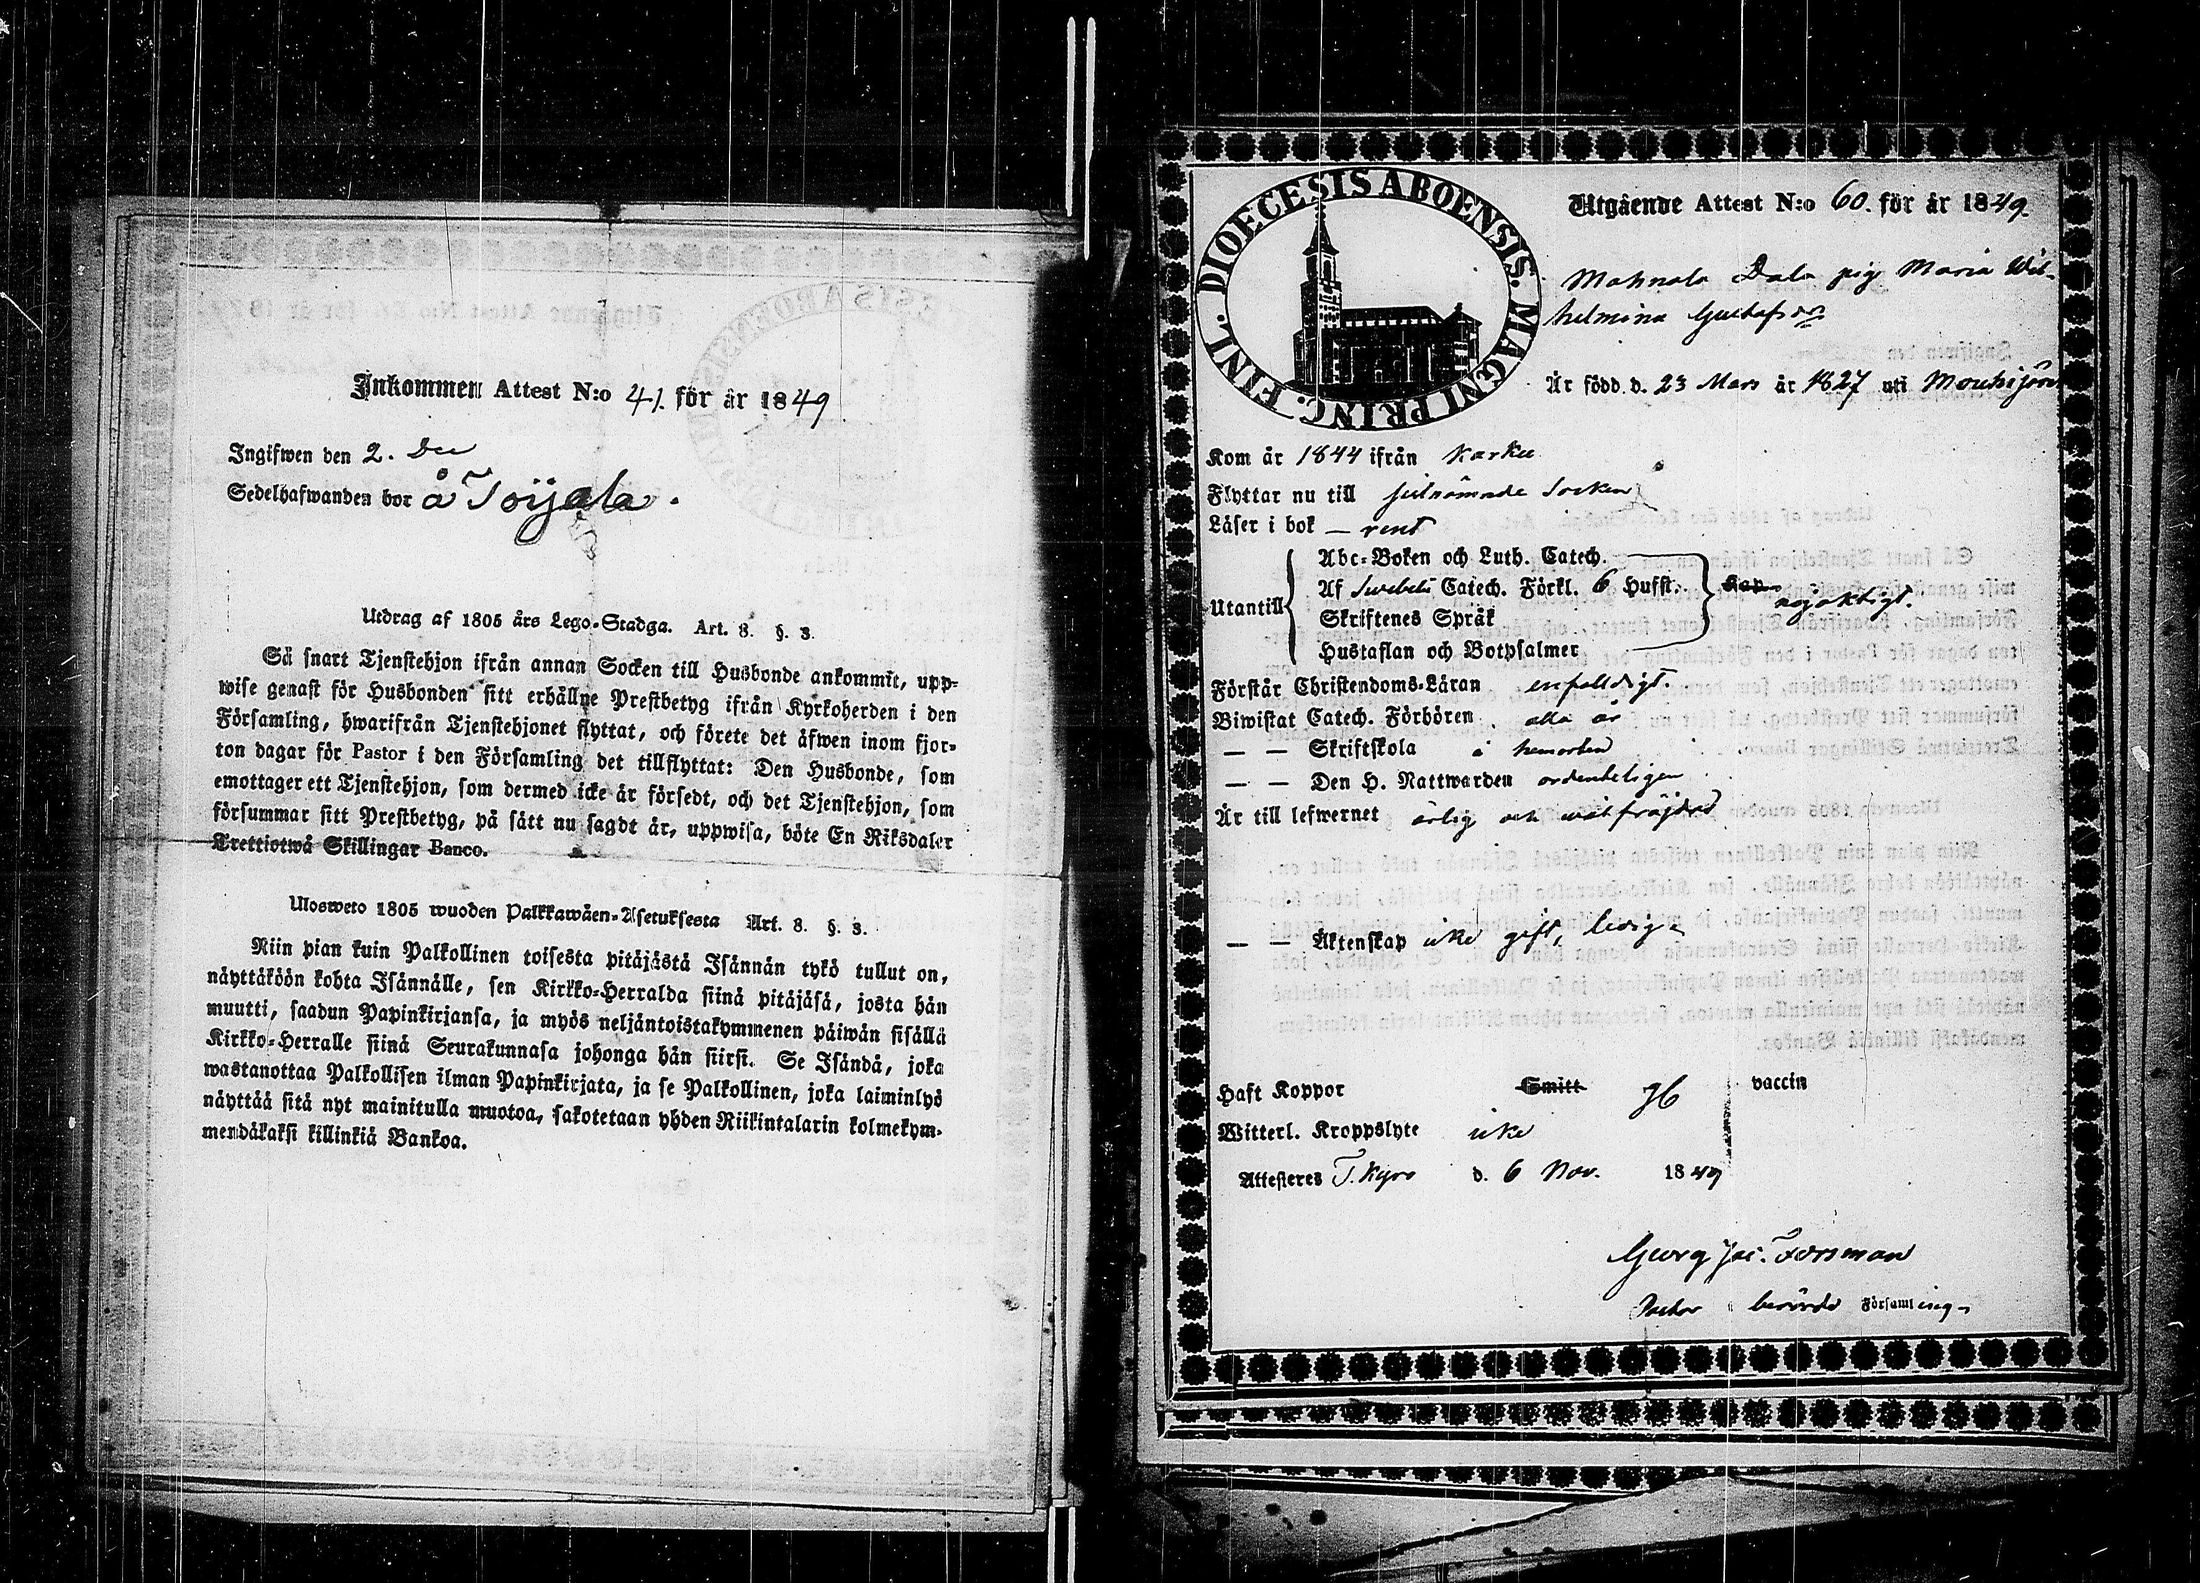 Inkommen Attest N:o 41. för år 1849
Ingifwen den 2. Dec
Sedelhafwanden bor å Toijala.
Utdrag af 1805 års Lego-Stadga. Art. 8. §. 3.
Så snart Tjenstehjon ifrån annan Socken till Husbonde ankommit, upp-
wise genast för Husbonden sitt erhållne Prestbetyg ifrån Kyrkoherden i den
Församling, hwarifrån Tjenstehjonet flyttat, och förete det äfwen inom fjor-
ton dagar för Pastor i den Församling det tillflyttat: Den Husbonde, som
emottager ett Tjenstehjon, som dermed icke är försedt, och det Tjenstehjon, som
försummar sitt Prestbetyg, på sätt nu sagdt är, uppwisa, böte En Riksdaler
Trettiotwå Skillingar Banco.
Ulosweto 1805 wuoden Palkkawäen-Asetuksesta Art. 8. §. 3.
Niin pian kuin Palkollinen toisesta pitäjästä Isännän tykö tullut on,
näyttäköön kohta Isännälle, sen Kirkko-Herralda siinä pitäjäsä, josta hän
muutti, saadun Papinkirjansa, ja myös neljäntoistakymmenen päiwän sisällä
Kirkko-Herralle siinä Seurakunnasa johonga hän siirsi. Se Isändä, joka
wastanottaa Palkollisen ilman Papinkirjata, ja se Palkollinen, joka laiminlyö
näyttää sitä nyt mainitulla muotoa, sakotetaan yhden Riikintalarin kolmekym-
mendäkaksi killinkiä Bankoa.
DIOECESIS ABOENSIS. MAGNI PRINC. FINL.
Utgående Attest N:o 60. för år 1849.
Mahnala Dala pig Maria Wil-
helmina Gustafsdr
Är född d. 23 Mars år 1827 uti Mouhijärvi
Kom år 1844 ifrån Karku
Flyttar nu till sistnämnde Socken
Läser i bok — rent
Abc-Boken och Luth. Catech.
Utantill Af Swebeli Catech. Förkl. 6 Hufst. Kap. nöjaktigt.
Skriftenes Språk
Hustaflan och Botpsalmer
Förstår Christendoms-Läran enfaldigt
Biwistat Catech. Förhören alla år
— — Skriftskola i hemorten
— — Den H. Nattwarden ordenteligen
Är till lefwernet ärlig och wälfräjdad
— — Äktenskap icke gift, ledig
Haft Koppor Smitt vaccin
Witterl. Kroppslyte icke
Attesteres T. Kyro d. 6 Nov. 1849
Georg Jac. Forsman
Pastor i berörde Församling